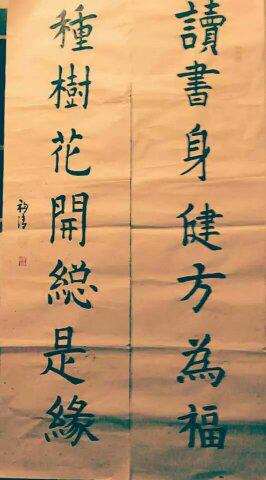 讀書身健方為福
種樹花開緫是緣